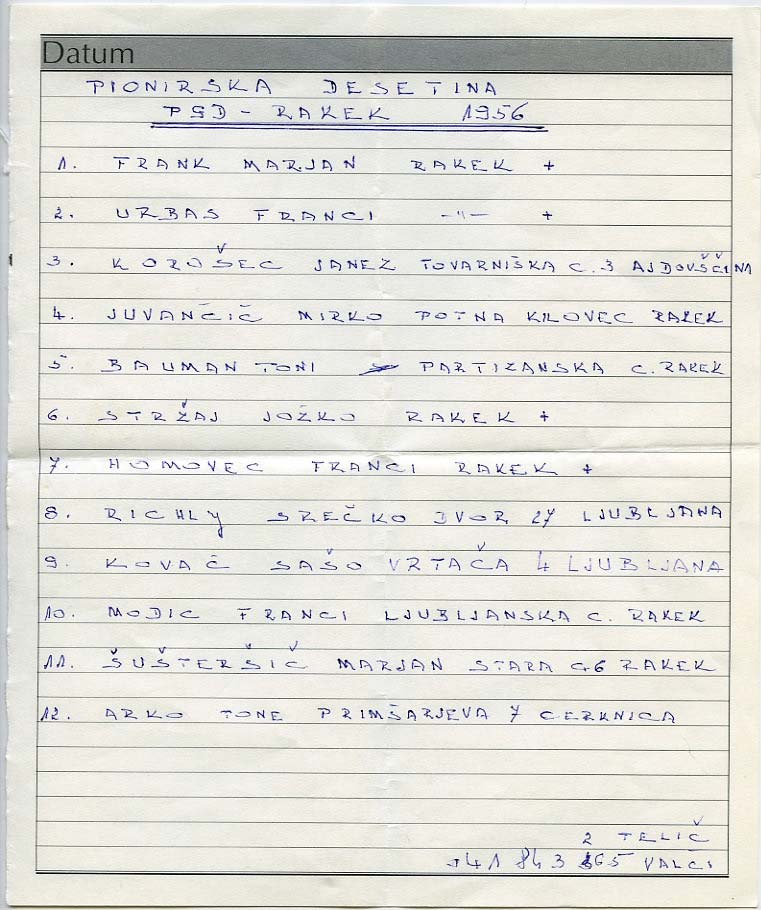 Datum
PIONIRSKA DESETINA
PGD - RAKEK 1956
1. FRANK MARJAN RAKEK +
2. URBAS FRANCI -"- +
3. KOROŠEC JANEZ TOVARNIŠKA C. 3 AJDOVŠČINA
4. JUVANČIČ MIRKO POTNA KILOVEC RAKEK
5. BAUMAN TONI PARTIZANSKA C. RAKEK
6. STRŽAJ JOŽKO RAKEK +
7. HOMOVEC FRANCI RAKEK +
8. RICHLY SREČKO DVOR 27 LJUBLJANA
9. KOVAČ SAŠO VRTAČA 4 LJUBLJANA
10. MODIC FRANCI LJUBLJANSKA C. RAKEK
11. ŠUŠTERŠIČ MARJAN STARA C. 6 RAKEK
12. ARKO TONE PRIMŠARJEVA 7 CERKNICA
2 TELIČ
41 843 VALČI